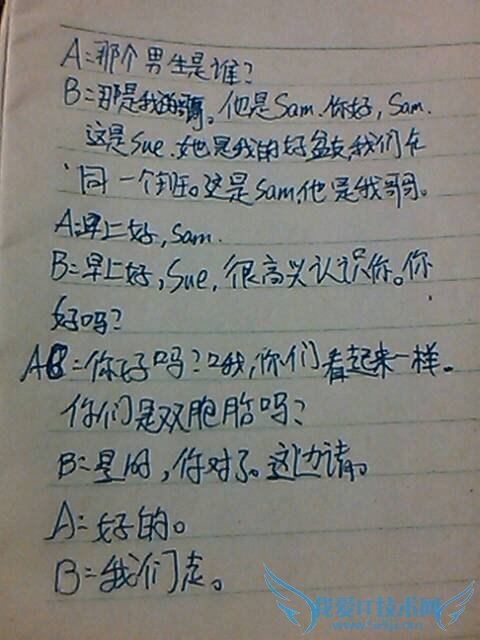 A:那个男生是谁?
B:那是我哥哥。他是Sam.你好,Sam.
这是Sue.她是我的好盆友,我们在
同一个班。这是Sam,他是我哥哥。
A:早上好,Sam.
B:早上好,Sue,很高兴认识你。你
好吗?
A:你好吗?哦,你们看起来一样。
你们是双胞胎吗?
B:是的,你对了。这边请。
A:好的。
B:我们走。
我爱IT技术网